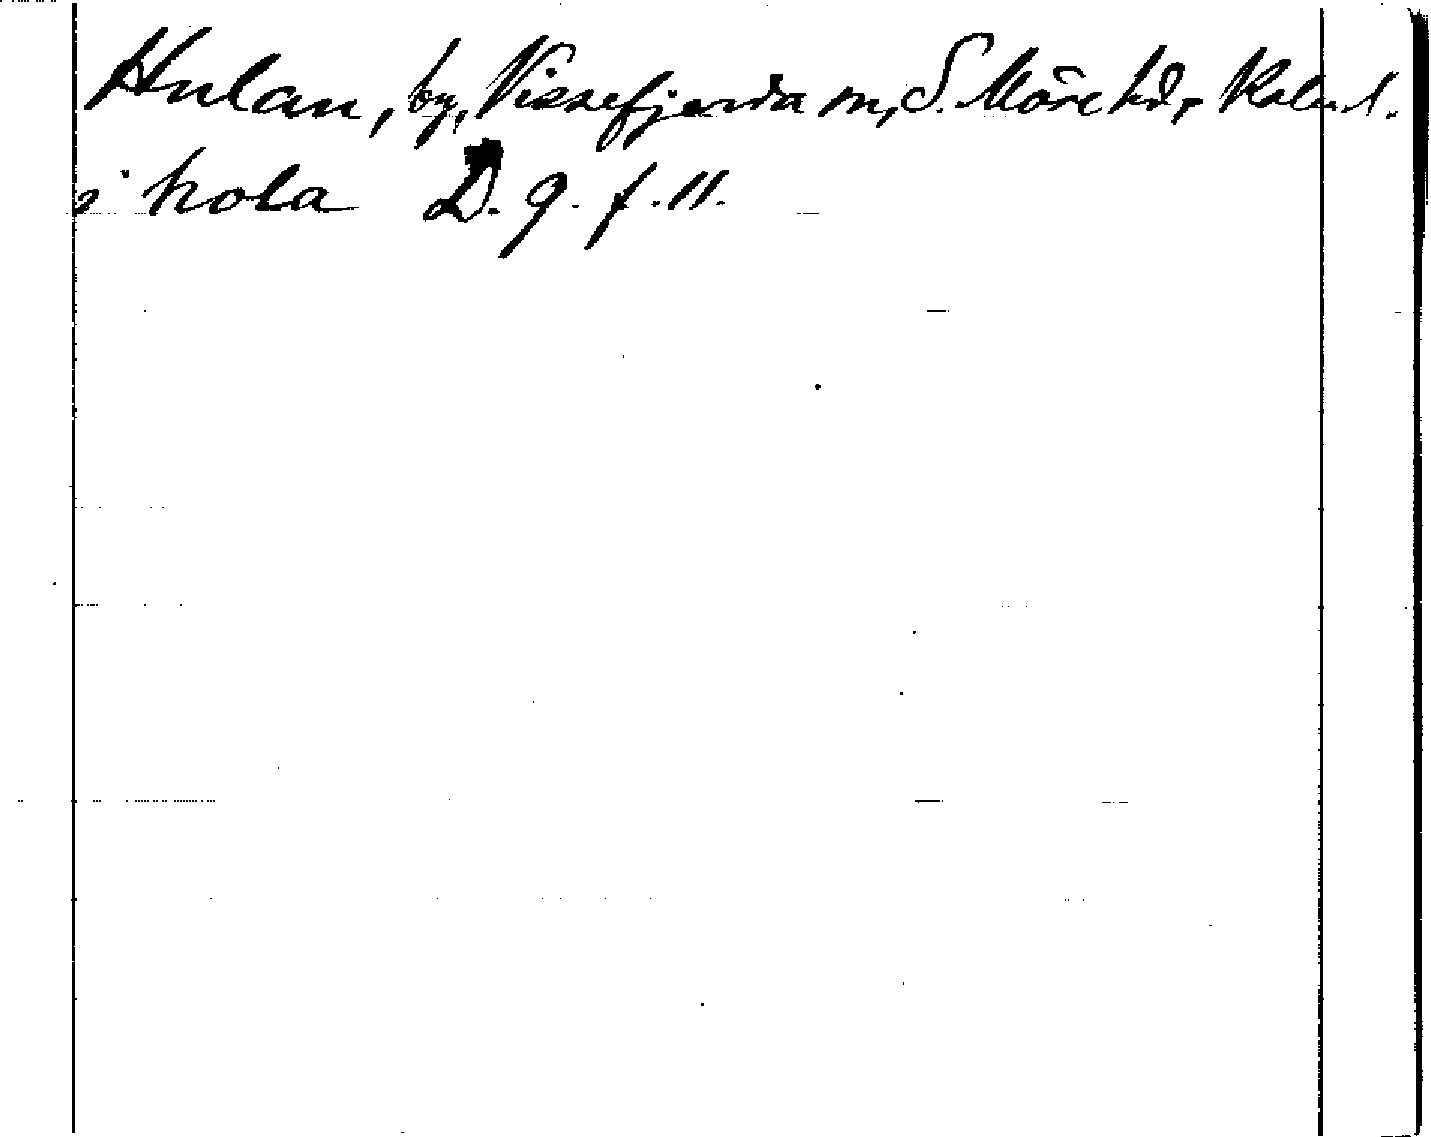 Hulan, by, Vissefjerda sn, S. Möre hd, Kalm. l.
i hola D. 9. f. 11.